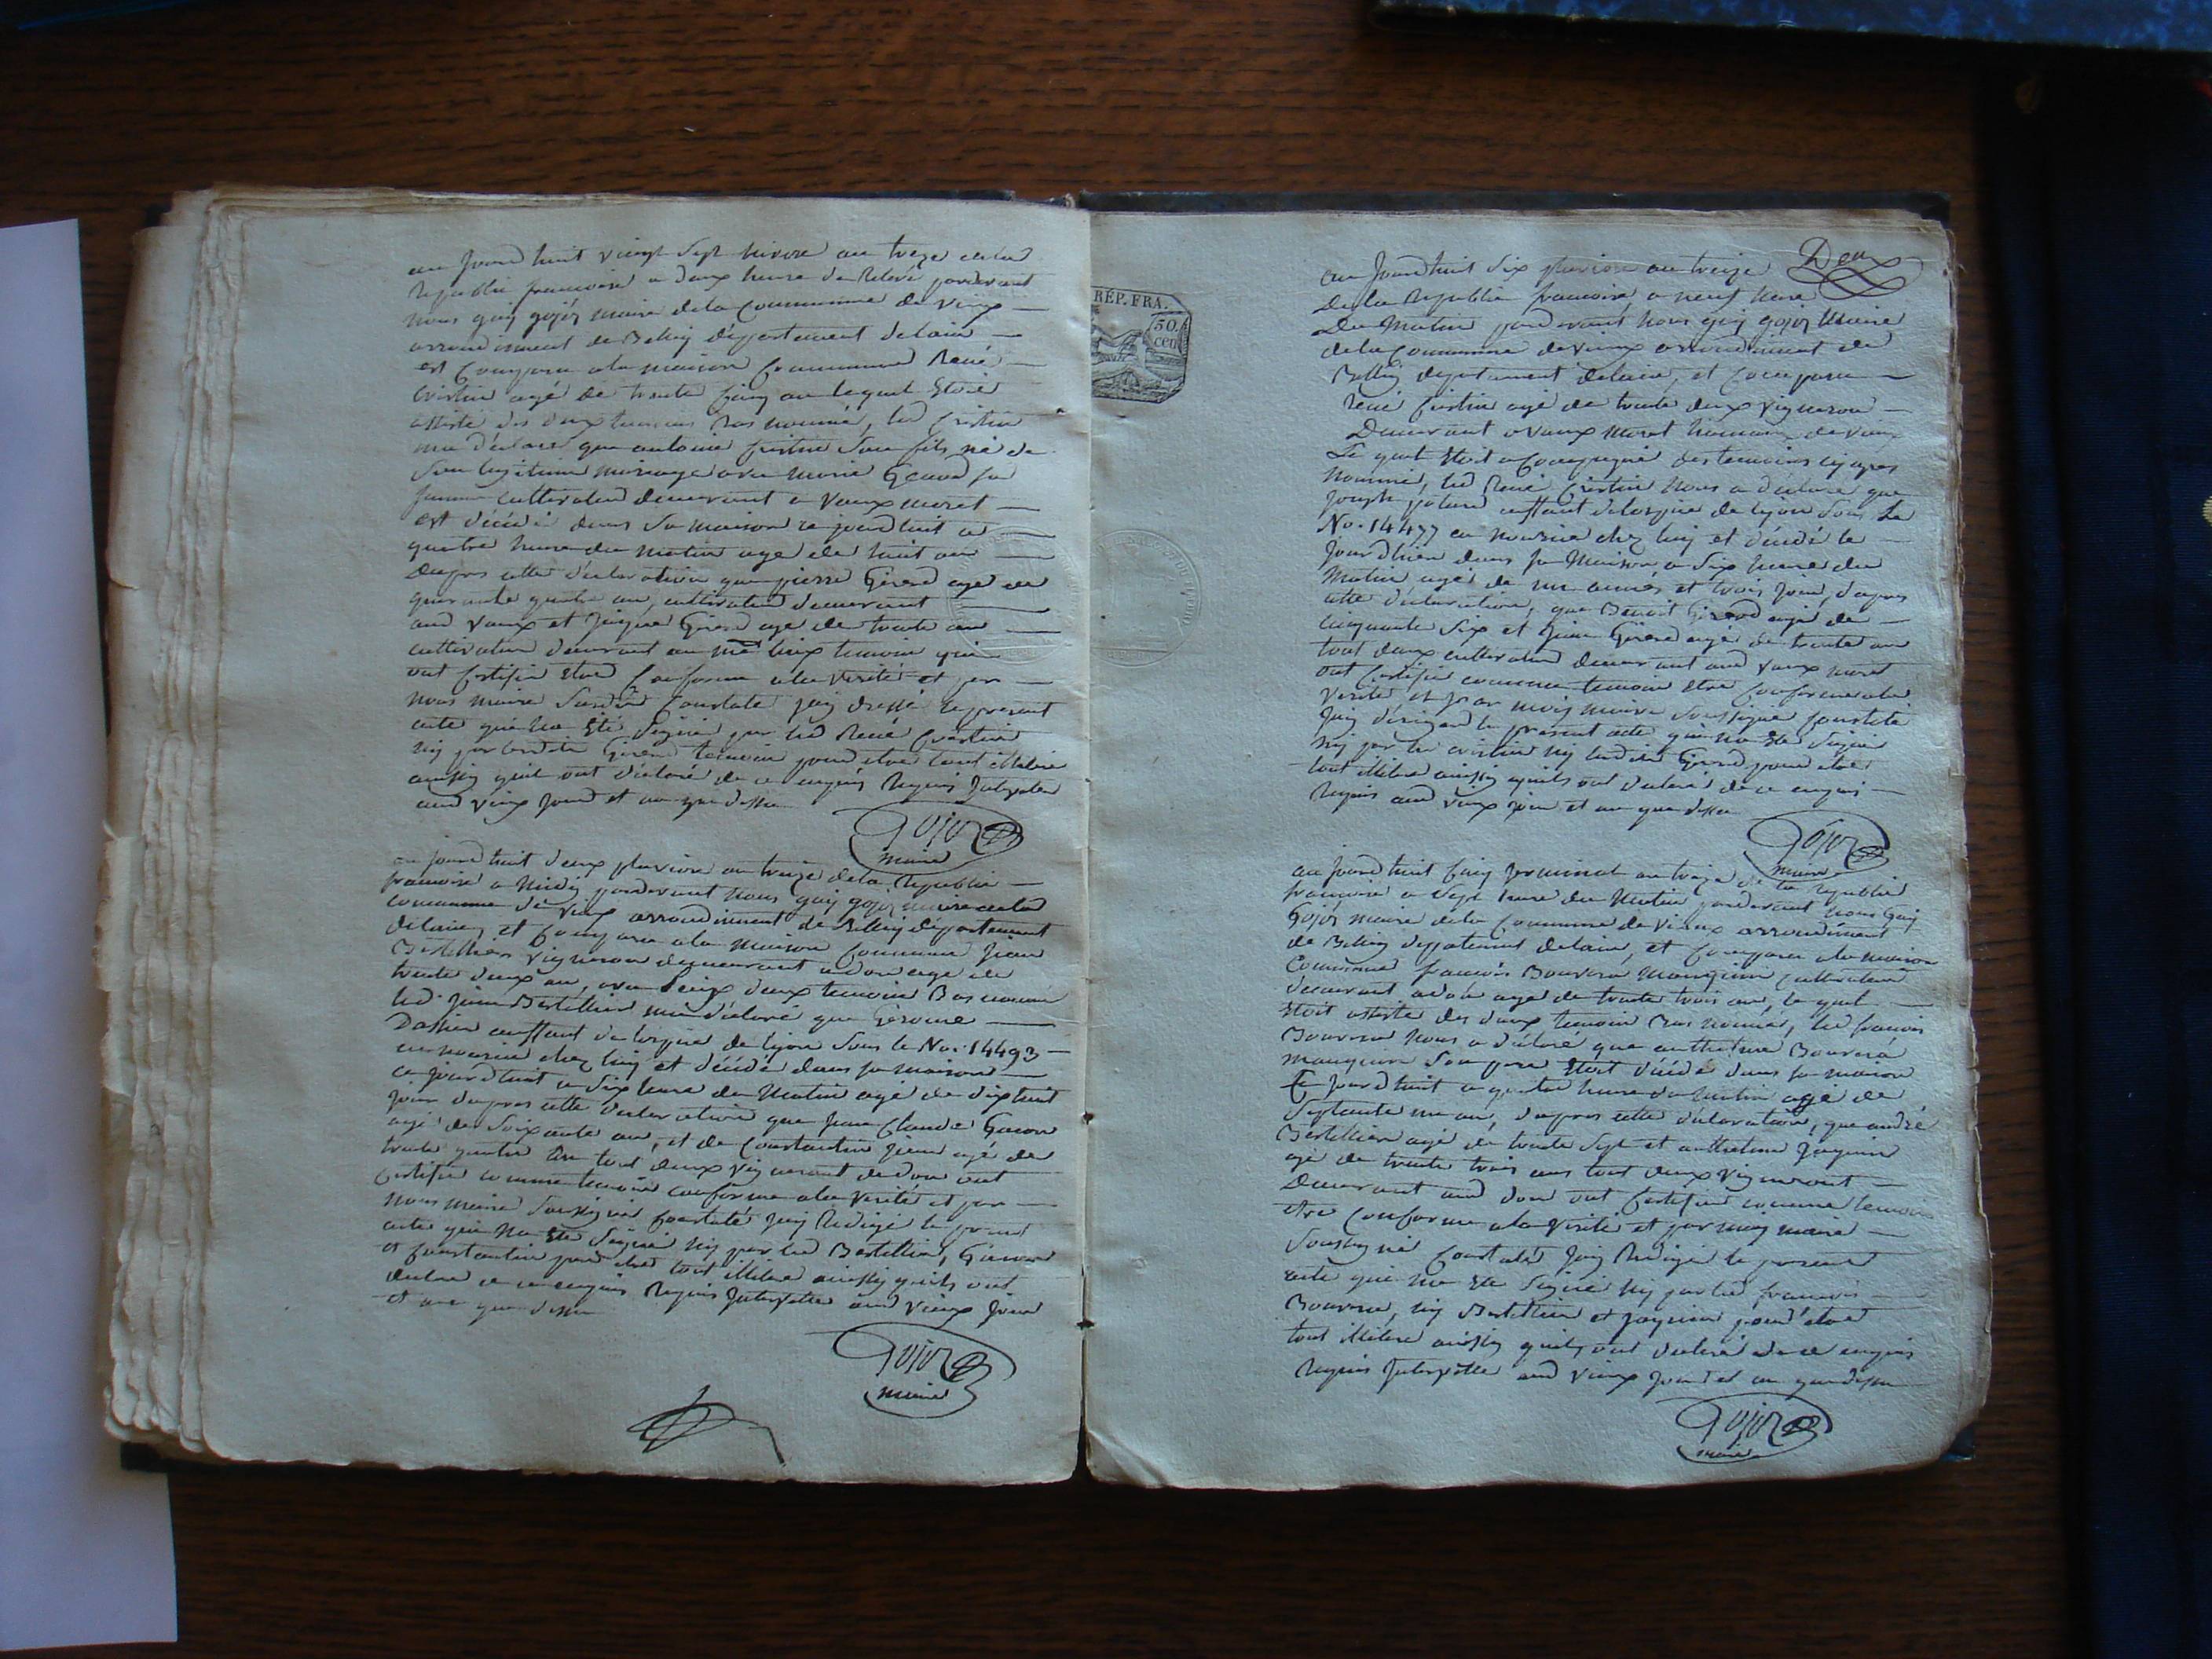 au Jourd huit vingt Sept nivose an treze de la
Republi francoise a deux heure de Relevé pardevant
nous guy gojoz maire de la Commune de vieux
arrondisment de Belley département de lain
est Comparu a la maison Commune René
Cristin agé de trente cinq an lequel Etoit
assisté des deux temoins Bas nommé, led Cristin
ma déclaré que antoine Cristin Son fils né de
Son legitime mariage avec marie sa
famme cultivateur demeurant a Vaux moret
est décédé dans Sa maison ce jourd huit a
quatre heure du matin age de huit ans
dapres cette déclaration que pierre Girerd age de
quarante quatre an, cultivateur demeurant
aud Vaux et Girerd age de trente an
cultivateur demeurant au meme lieux temoin qui
ont certifié Etre Conforme a la verité et par
nous maire Constaté jay dressé le present
acte qui na Eté Signé par led René Cristin
ny par lesdits Girerd temoin pour etre tout illitéré
ainsy quil ont déclaré de ce enquis Requis Interpeler
aud vieux Jour et an que dessu
Gojoz
maire
au jourd huit deux pluviose an treize de la Republi
francoise a midy pardevant nous guy gojoz maire de la
commune de vieux arrondisment de Belley département
delain, et Comparu a la maison Commune Jean
Bertellier vigneron demeurant a don age de
trente deux an, avec deux temoin Bas nommé
led. Jean Bertellier ma déclaré que Gerome
Dassier anffant de lospice de lyon Sous le No. 14493
en nourice chez luy et décédé dans sa maison
ce jourd huit a Six heure du Matin agé de dix huit
jour dapres cette declaration que Jean Claude
agé de Soixante an, et de Constantin Jean agé de
trente quatre an tout deux vigneront de don ont
certifié comme temoin conforme a la verité et par
nous maire Soussigné constaté Jay Redigé le present
acte qui na Eté Signé ny par led Bertellier,
et Constantin pour etre tout illitéré ainsy quils ont
declaré de ce enquis Requis Interpellé aud vieux Jour
et an que dessu
Gojoz
maire
RÉP. FRA.
50.
cen
Deux
au Jourd huit Six pluviose an treize
De la Republi francoise a neuf heure
Du Matin pardevant nous guy gojoz Maire
de la Commune de vieux arrondisment de
Belley departement delain, et Comparu
René Cristin agé de trente deux vigneron
Demeurant a Vaux moret hameaux de vieux
Le quel Etoit acompagné des temoins cy apres
nommé, led René Cristin nous a declaré que
Joseph anffant delospice de lyon Sous Le
No. 14477 en nourice chez luy et décédé le
Jourd hier dans sa Maison a Six heure du
Matin agé de un année et trois Jour, dapres
cette declaration, que Benoit Girerd agé de
cinquante Six et Girerd agé de trente an
tout deux cultivateur demeurant aud vaux moret
ont certifié comme temoin Etre Conforme a la
verité et par moy maire Soussigné Constaté
Jay le present acte qui na Eté Signé
ny par led cristin ny lesdits Girerd pour etre
tout illitéré ainsy quils ont declaré de ce enquis
Requis aud vieux jour et an que dessu
Gojoz
maire
au jourd huit Cinq Germinal an treize de la Republi
francoise a Sept heure du Matin pardevant nous Guy
Gojoz maire de la Commune de vieux arrondisment
de Belley deppartement delain, et Comparu a la maison
Commune francois Bouvera Manguin cultivateur
demeurant a don age de trente trois an, le quel
Etoit assisté des deux temoin Bas nommé, led francois
Bouvera nous a déclaré que anthelme Bouvera
manguin Son pere Etoit décédé dans sa maison
Ce Jourd huit a quatre heure du Matin agé de
Septante un an, dapres cette déclaration, que andré
Bertellier agé de trente Sept et anthelme
agé de trente trois ans tout deux vigneront
Demeurant aud don ont certifié comme temoin
etre Conforme a la verité et par moy maire
Soussigné Constaté Jay Redigé le present
acte qui na Eté Signé ny par led francois
Bouvera, ny Bertellier et pour etre
tout illitéré ainsy quils ont declaré de ce enquis
Requis Interpellé aud vieux Jour et an que dessu
Gojoz
maire